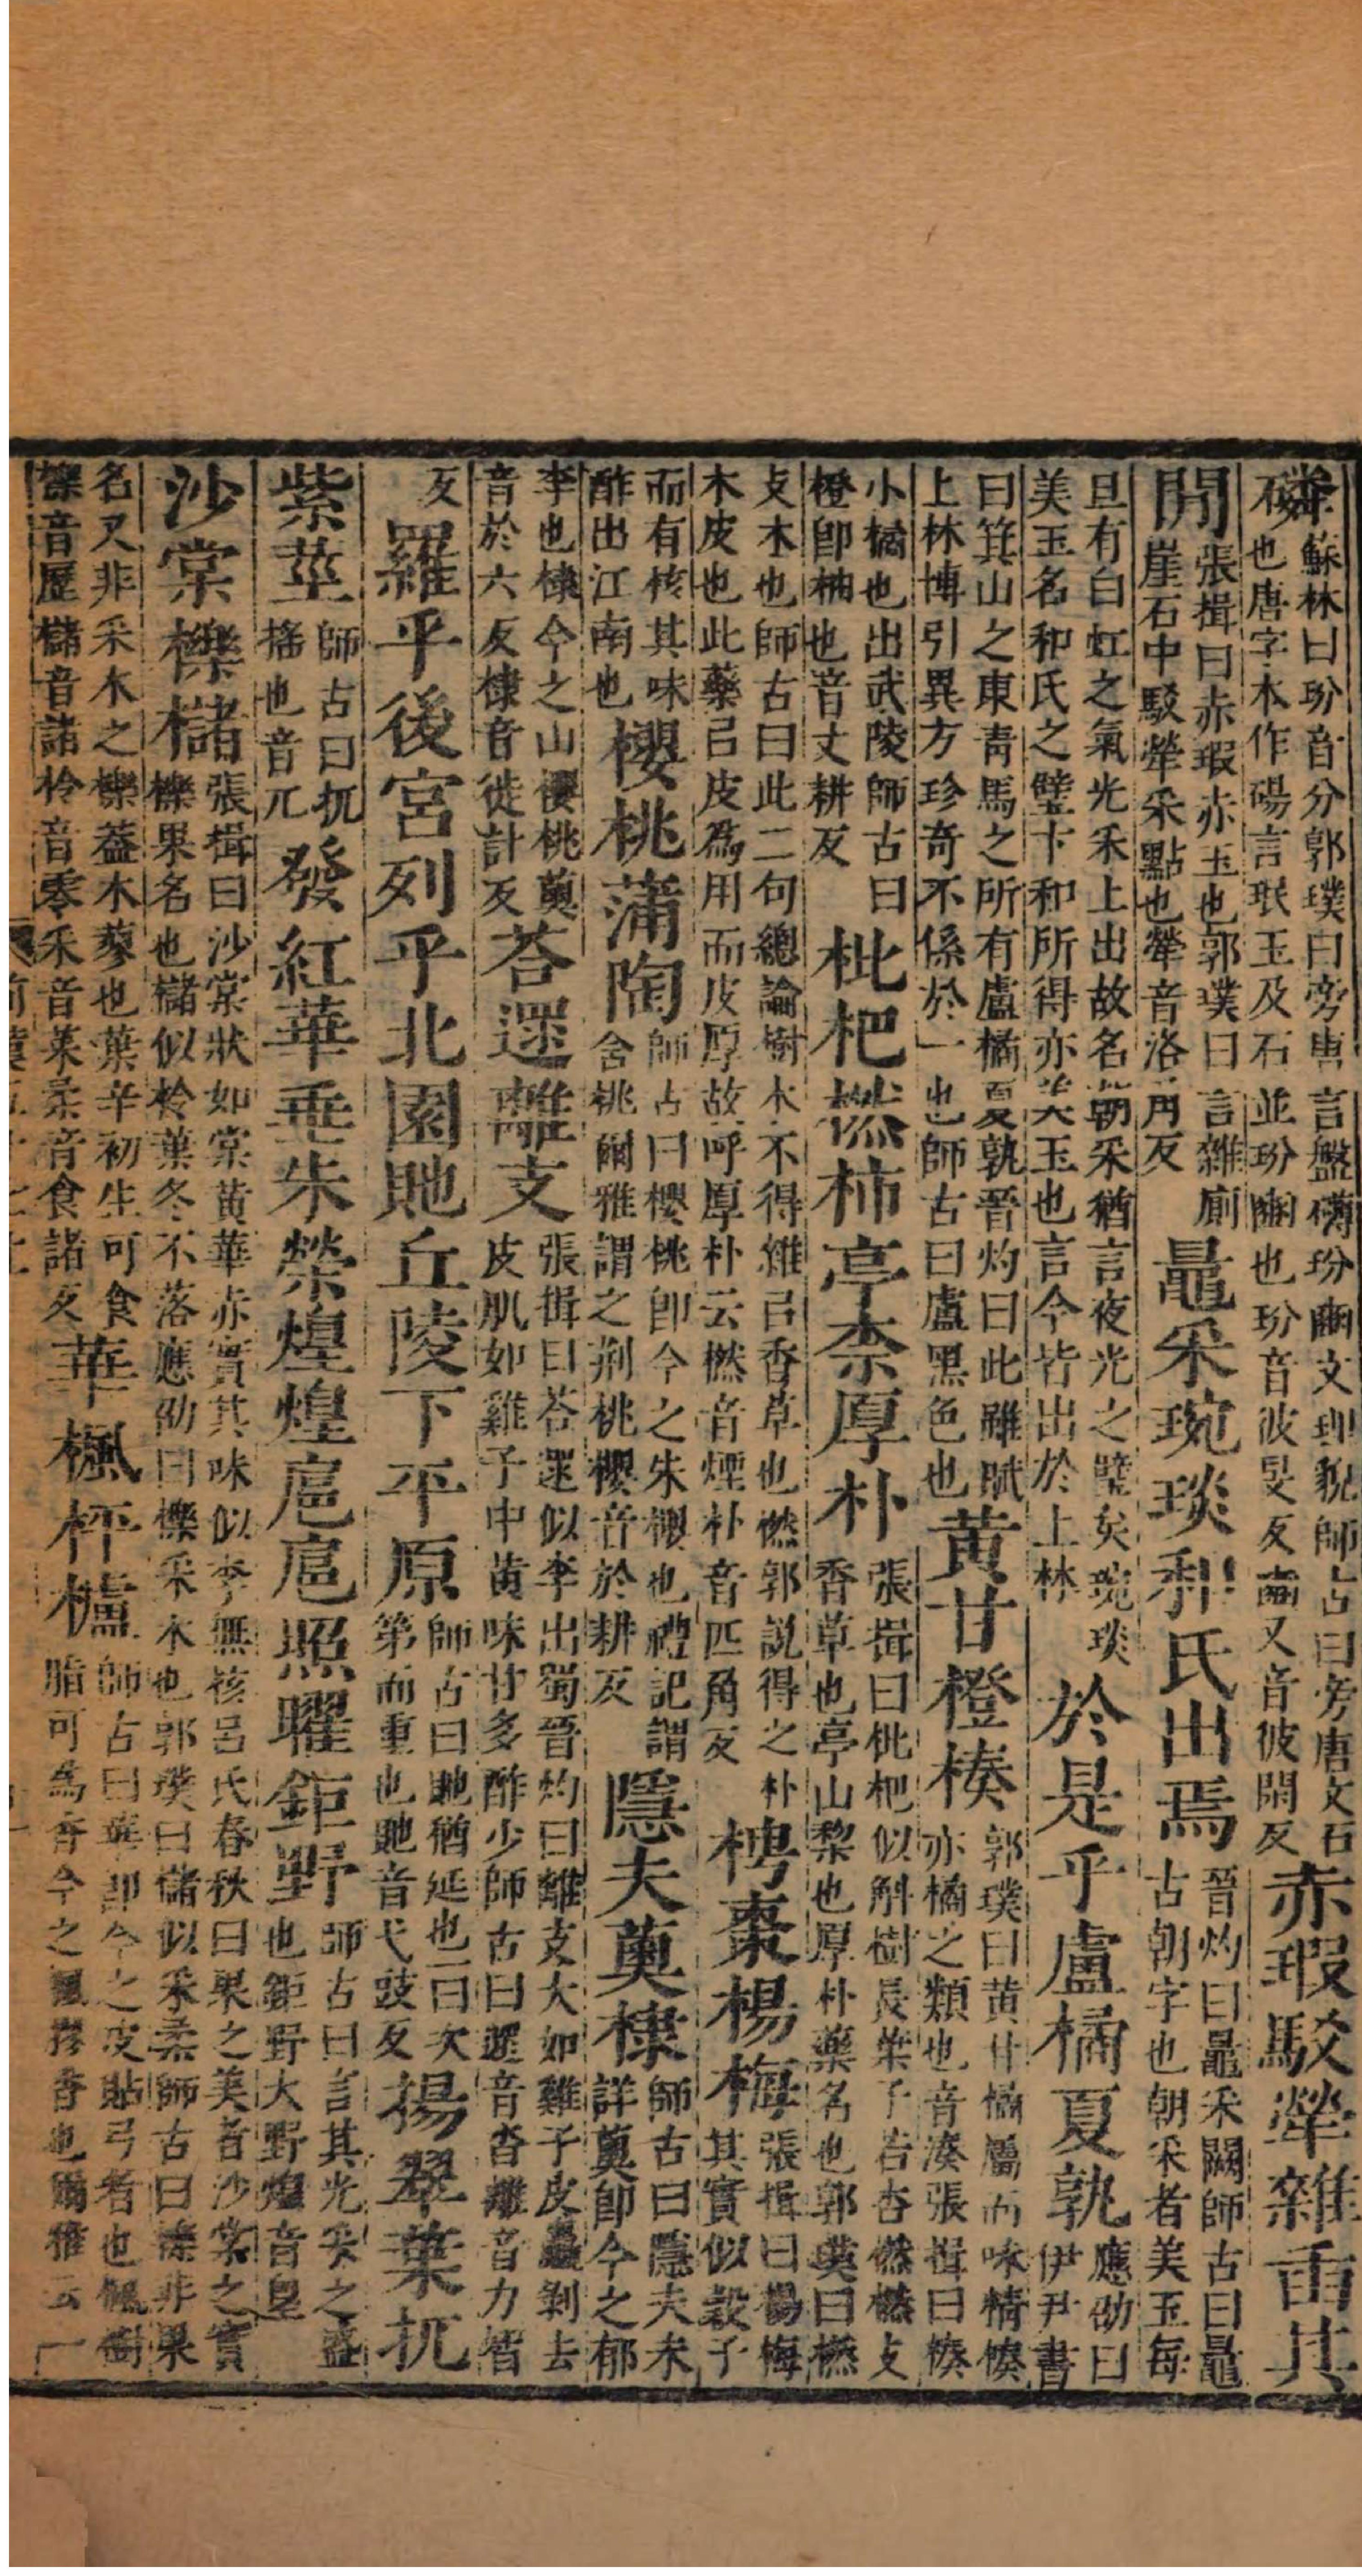 磷蘇林曰玢音分郭璞曰旁唐言盤礴玢豳文理貌師古曰旁唐文石也唐字本作碭言珉玉及石並玢豳也玢音彼旻反豳又音彼閑反赤瑕駁犖雜臿其
閒張揖曰赤瑕赤玉也郭璞曰言雜廁崖石中駁犖采點也犖音洛角反鼂采琬琰和氏出焉晉灼曰鼂采闕師古曰鼂古朝字也朝采者美玉每
旦有白虹之氣光采上出故名朝采猶言夜光之璧矣琬琰美玉名和氏之璧卞和所得亦美玉也言今皆出於上林於是乎盧橘夏孰應劭曰伊尹書
曰箕山之東青馬之所有盧橘夏孰晉灼曰此雖賦上林博引異方珍奇不係於一也師古曰盧黑色也黄甘橙楱郭璞曰黄甘橘屬而味精楱亦橘之類也音湊張揖曰楱
小橘也出武陵師古曰橙卽柚也音丈耕反枇杷橪柿亭柰厚朴張揖曰枇杷似斛樹長葉子若杏橪橪支香草也亭山棃也厚朴藥名也郭璞曰橪
支木也師古曰此二句總論樹木不得雜㠯香草也橪郭說得之朴木皮也此藥㠯皮爲用而皮厚故呼厚朴云橪音煙朴音匹角反梬棗楊梅張揖曰楊梅其實似榖子
而有核其味酢出江南也櫻桃蒲陶師古曰櫻桃卽今之朱櫻也禮記謂舍桃爾雅謂之荆桃櫻音於耕反隱夫薁棣師古曰隱夫未詳薁卽今之郁
李也棣今之山櫻桃薁音於六反棣音徒計反荅遝離支張揖曰荅遝似李出蜀晉灼曰離支大如雞子皮麤剝去皮肌如雞子中黄味甘多酢少師古曰遝音沓離音力智
反羅乎後宮列乎北園貤丘陵下平原師古曰貤猶延也一曰次第而重也貤音弋豉反揚翠葉扤
紫莖師古曰扤搖也音兀發紅華垂朱榮煌煌扈扈照曜鉅野師古曰言其光采之盛也鉅野大野煌音皇
沙棠櫟櫧張揖曰沙棠狀如棠黄華赤實其味似李無核呂氏春秋曰果之美者沙棠之實櫟果名也櫧似柃葉冬不落應劭曰櫟采木也郭璞曰櫧似采柔師古曰櫟非果
名又非采木之櫟葢木蓼也葉辛初生可食櫟音歷櫧音諸柃音零采音菜柔音食諸反華楓枰櫨師古曰華卽今之皮貼弓者也楓樹脂可爲香今之楓膠香也爾雅云一